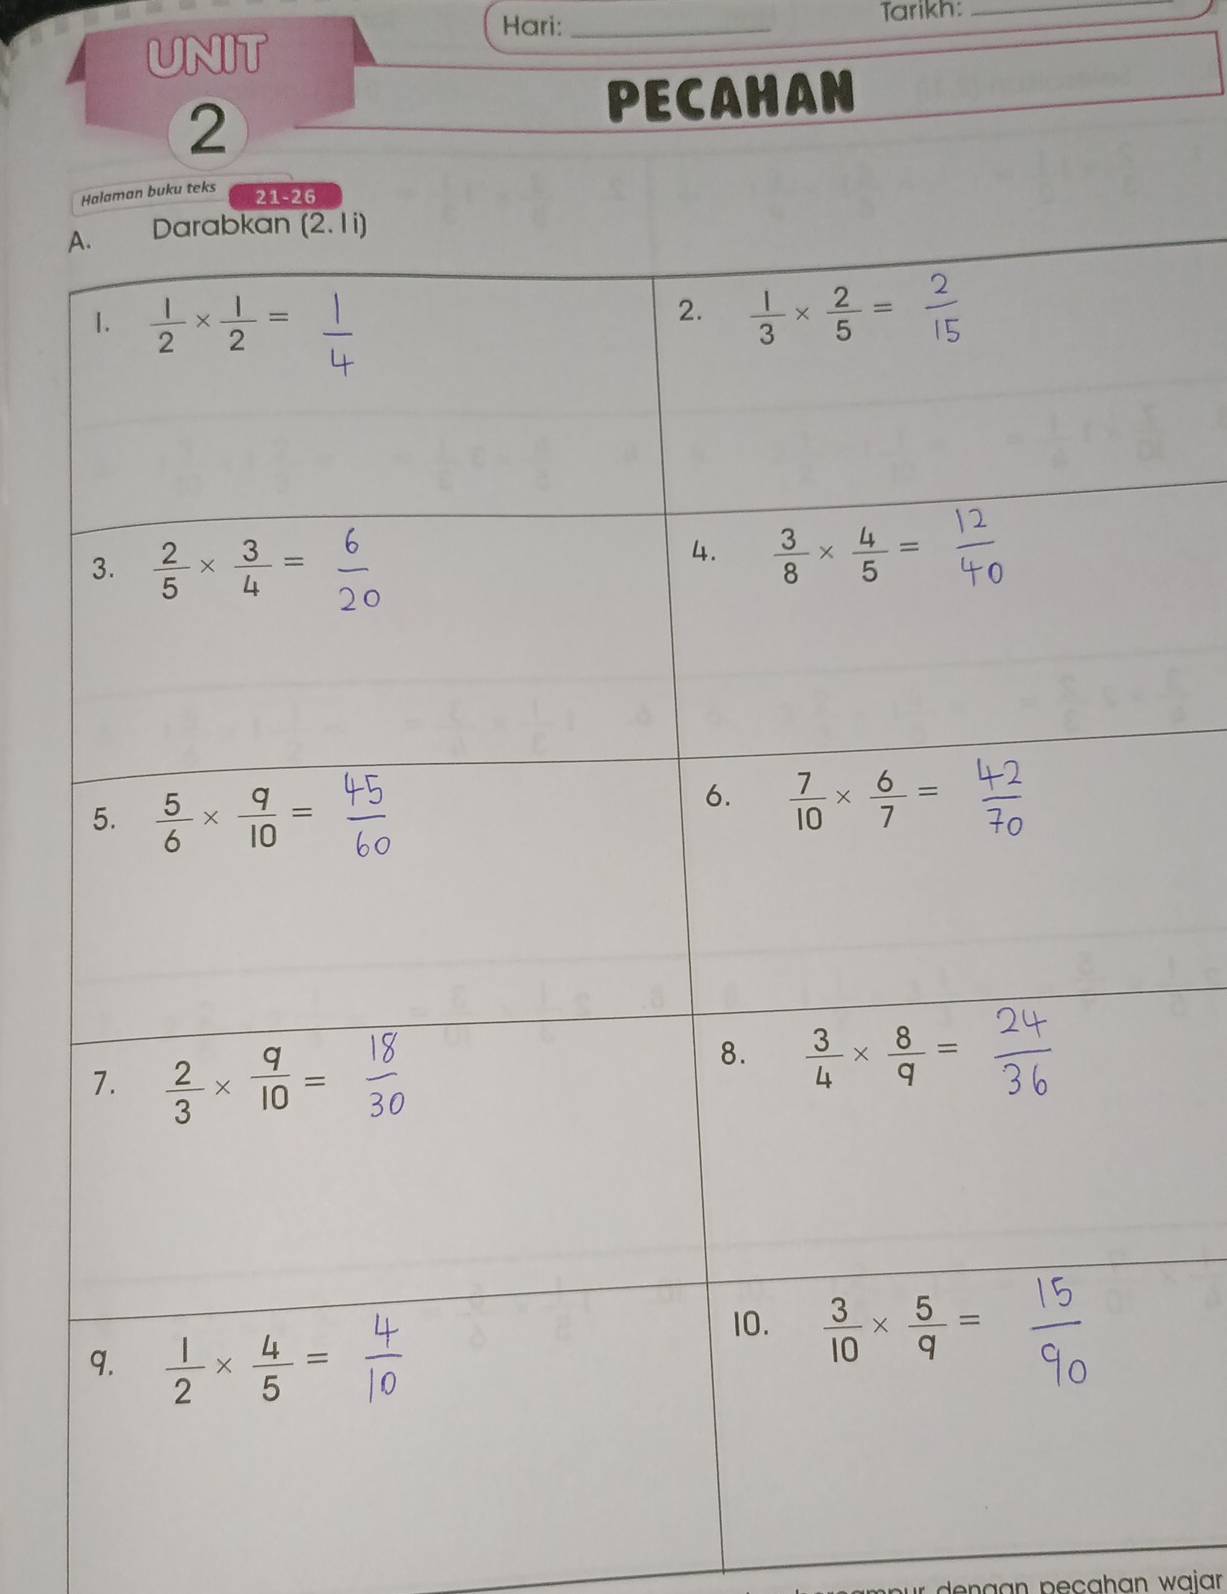 Hari: ____________ Tarikh: ____________
UNIT
2
PECAHAN
Halaman buku teks 21-26
A. Darabkan (2.1 i)
1. 1/2 × 1/2 = 1/4
2. 1/3 × 2/5 = 2/15
3. 2/5 × 3/4 = 6/20
4. 3/8 × 4/5 = 12/40
5. 5/6 × 9/10 = 45/60
6. 7/10 × 6/7 = 42/70
7. 2/3 × 9/10 = 18/30
8. 3/4 × 8/9 = 24/36
9. 1/2 × 4/5 = 4/10
10. 3/10 × 5/9 = 15/90
dengan pecahan wajar